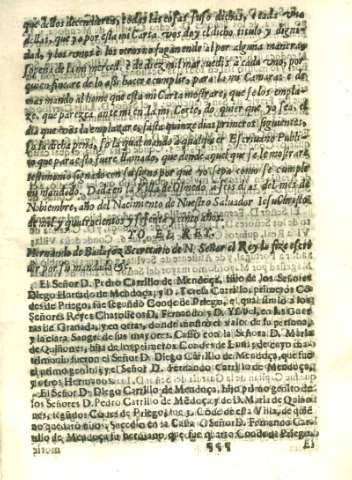 que dellos decendieren, todas las cosas suso dichas, è cada una
dellas, que yo por esta mi Carta vos doy el dicho titulo y digni-
dad, y los unos è los otros no fagan ende al por alguna manera,
sopena de la mi merced, è de diez mil maravedis à cada uno, por
quien fincare de lo assi hacer è cumplir, para la mi Camara è de-
mas mando al home que esta mi Carta mostrare, que os los empla-
ze, que parezca ante mi en la mi Corte, do quier que yo sea, el
dia que vos la emplazare, fasta quinze dias primeros siguientes,
so la dicha pena, so la qual mando à qualquier Escrivano Publi-
co que para esto fuere llamado, que dende aquel que se le mostrare
testimonio signado con su signo por que yo sepa como se cumple
mi mandado. Dada en la Villa de Olmedo à seis dias del mes de
Nobiembre, año del Nacimento de Nuestro Salvador Iesu Christo
de mil y quatrocientos y sesenta y cinco años.
YO EL REY.
Hernando de Badajoz Secretario de N. Señor el Rey la fize escrivir
por su mandado &c.
El Señor D. Pedro Carrillo de Mendoça, hijo de los Señores
Diego Hurtado de Mendoça, y D. Teresa Carrillo, primeros Co-
des de Priego, fue segundo Conde de Priego, el qual sirviò à los
Señores Reyes Chatolicos D. Fernando y D. Ysabel, en las Guer-
ras de Granada, y en otras, donde mostrò el valor de su persona,
y la clara Sangre de sus mayores. Casò con la Señora D. Maria
de Quiñones, hija de los primeros Condes de Luna, de cuyo ma-
trimonio fueron el Señor D. Diego Carrillo de Mendoça, que fue
el primogenito, y el Señor D. Fernando Carrillo de Mendoça,
y otros Hermanos.
El Señor D. Diego Carrillo de Mendoça, hijo primogenito de
los Señores D. Pedro Carrillo de Mẽdoça, y de D. Maria de Quiño-
nes, segũdos Cõdes de Priego, fue 3. Cõde de esta Villa, de quiẽ
no quedarõ hijos, Sucedio en la Casa D. Señor D. Fernando Car-
rillo de Mendoça su hermano, que fue quarto Conde de Priego.
¶¶¶ El